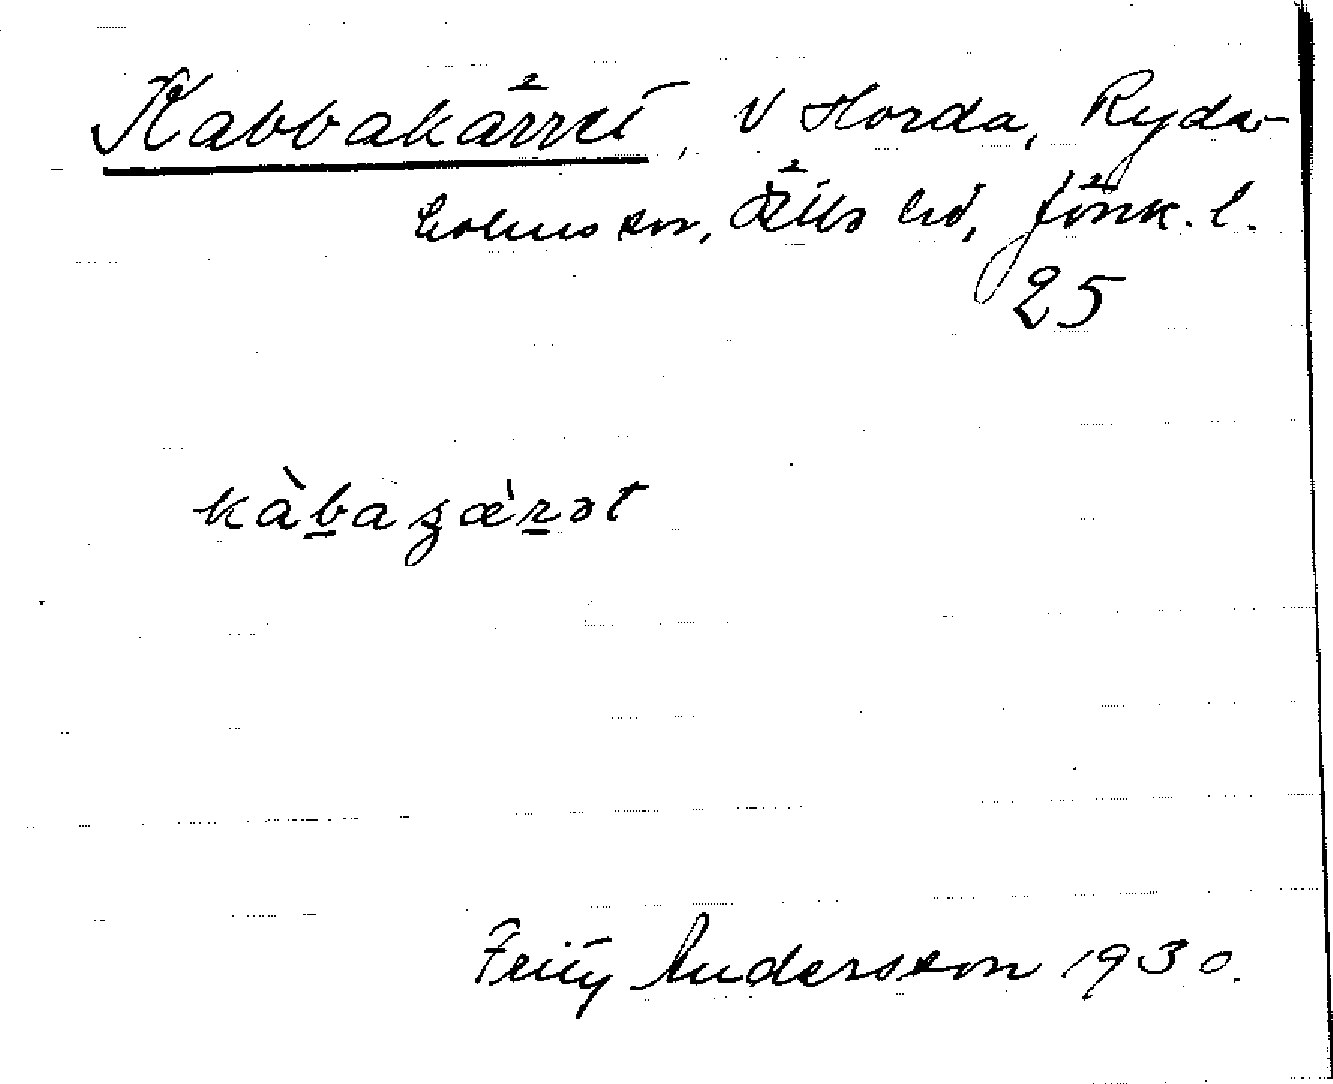 Kabbakärret, V Horda, Ryda-
holms sn, Östbo hd, Jönk. l.
25
kàba ʒæ̀rət
Fritz Andersson 1930.